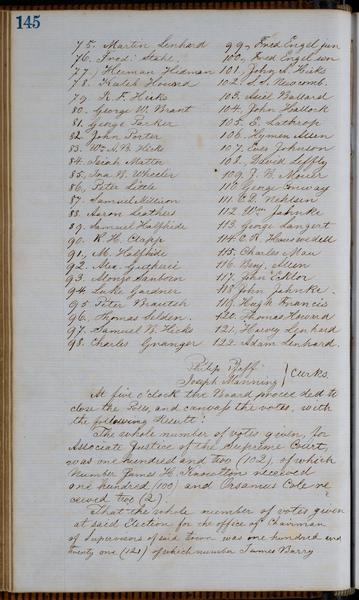 145
75. Martin Lenhard
76. Fred. Stahl
77. Herman Hidman
78. Kaleb Hound
79. R. F. Hicks
80. George W. Brant
81. George Packer
82. John Porter
83. Wm. A. B. Hicks
84. Isiah Matter
85. Ira W. Wheeler
86. Peter Little
87. Samuel Million
88. Aaron Leathers
89. Samuel Halfhide
90. R. H. Clapp
91. M. Halfhide
92. Mc. Guthrie
93. Alonzo Sanborn
94. Luke Gardner
95. Peter Brautsh
96. Thomas Selden
97. Samuel B. Hicks
98. Charles Granger
99. Fred Engel jun
100. Fred Engel sen
101. John S. Hicks
102. L. S. Newcomb
103. Asiel Ballard
104. John Hallock
105. E. Lathrop
106. Hymen Allen
107. Even Johnson
108. David Leffly
109. J. B. Moier
110. George Conway
111. C. D. Nehlsen
112. Wm. Jahnke
113. George Langert
114. C. R. Hauswedell
115. Charles Mau
116. Benj. Allen
117. John Ecklor
118. John Jahnke
119. Hugh Francis
120. Thomas Howard
121. Harvey Lenhard
122. Adam Lenhard
Philip Pfaff
Joseph Manning } Clerks.
At five o'clock the Board proceeded to
close the Polls, and canvass the votes, with
the following Result:
The whole number of votes given, for
Associate Justice of the Supreme Court,
was one hundred and two (102) of which
number James H. Knowlton received
one hundred (100) and Orsamus Cole re-
ceived two (2).
That the whole number of votes given
at said Election for the office of Chairman
of Supervisors of said town was one hundred and
twenty one (121) of which number James Barry